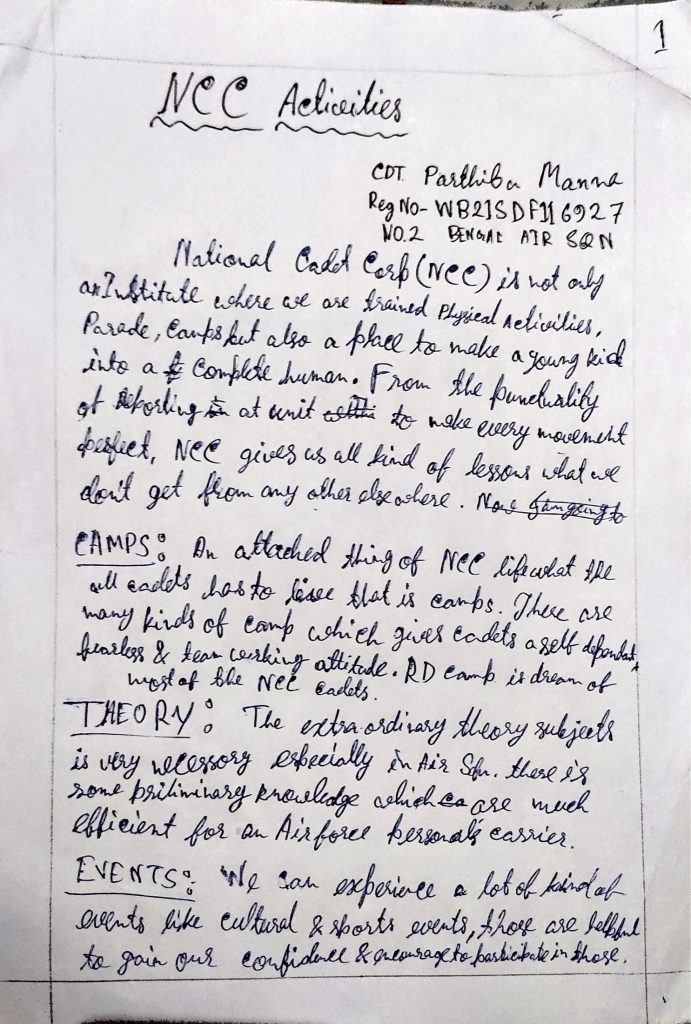 1
NCC Activities
CDT Parthiba Manna
Reg No- WB21SDF116927
NO.2 BENGAL AIR SQN
National Cadet Corp (NCC) is not only
an Institute where we are trained Physical Activities,
Parade, Camps but also a place to make a young kid
into a complete human. From the punctuality
of Reporting at unit to make every movement
perfect, NCC gives us all kind of lessons what we
don't get from any other else where. Now
CAMPS: An attached thing of NCC life what the
all cadets has to live that is camps. There are
many kinds of camp which gives cadets a self dependant,
fearless & team working attitude. RD camp is dream of
most of the NCC cadets.
THEORY: The extra-ordinary theory subjects
is very necessory especially in Air Sqn. there is
some priliminary knowledge which are much
efficient for an Airforce personal's carrier.
EVENTS: We can experience a lot of kind of
events like cultural & sports events, those are helpful
to gain our confidence & encourage to participate in those.